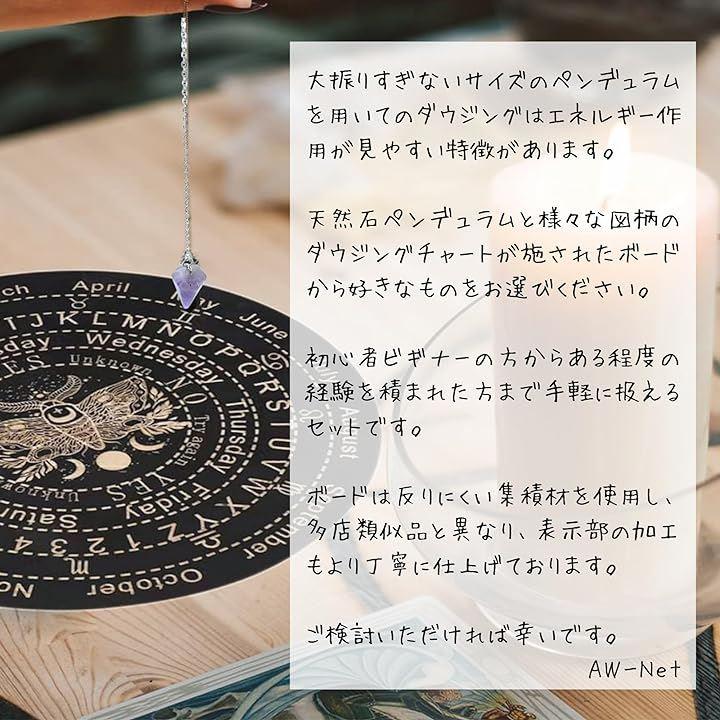 大振りすぎないサイズのペンデュラム
を用いてのダウジングはエネルギー作
用が見やすい特徴があります。
天然石ペンデュラムと様々な図柄の
ダウジングチャートが施されたボード
から好きなものをお選びください。
初心者ビギナーの方からある程度の
経験を積まれた方まで手軽に扱える
セットです。
ボードは反りにくい集積材を使用し、
多店類似品と異なり、表示部の加工
もより丁寧に仕上げております。
ご検討いただければ幸いです。
AW-Net
April
June
August
October
IJKLMNOPQRSTUVWXYZ
Wednesday
Thursday
Friday
Unknown
NO
Try again
YES
Unknown
1 2 3 4